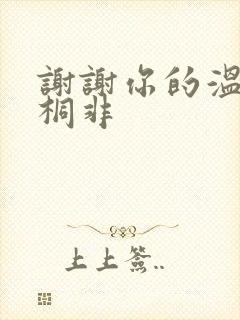 謝謝你的溫
桐非
上上簽..